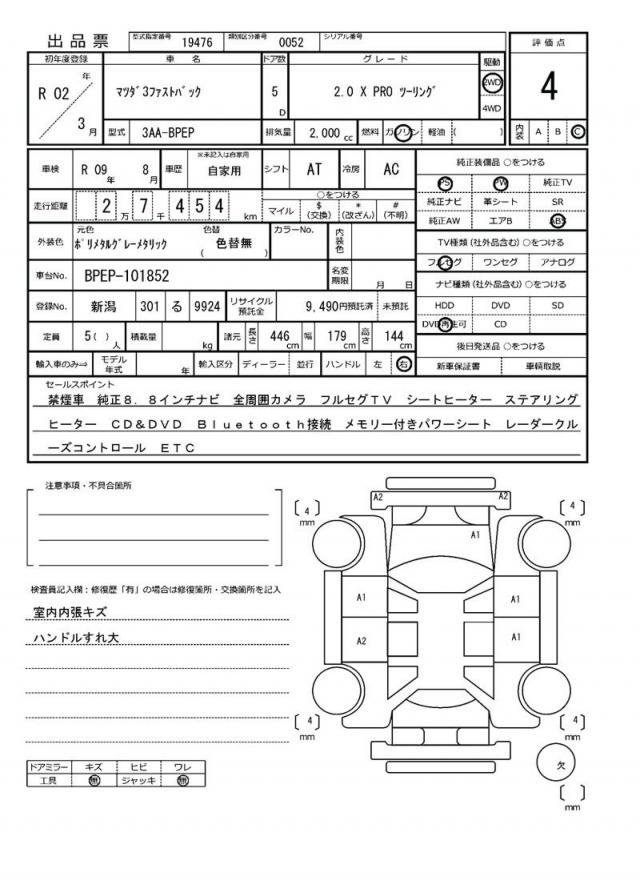 出品票 型式指定番号 19476 類別区分番号 0052 シリアル番号
初年度登録 車 名 ドア数 グレード 駆動 評価点
R 02 年 3 月 マツダ3ファストバック 5 D 2.0 X PRO ツーリング 2WD 4WD 4
型式 3AA-BPEP 排気量 2,000 cc 燃料 ガソリン 軽油 ( ) 内装 A B C
車検 R 09 年 8 月 車歴 ※未記入は自家用 自家用 シフト AT 冷房 AC 純正装備品 ○をつける
PS PW 純正TV
走行距離 2 万 7 千 4 5 4 km ○をつける
マイル $ (交換) * (改ざん) # (不明)
純正ナビ 革シート SR
純正AW エアB ABS
外装色 元色 ポリメタルグレーメタリック 色替 ( 色替無 ) カラーNo. 内装色
TV種類 (社外品含む) ○をつける
フルセグ ワンセグ アナログ
車台No. BPEP-101852 名変期限 月 日
ナビ種類 (社外品含む) ○をつける
登録No. 新潟 301 る 9924 リサイクル預託金 9,490円預託済 未預託
HDD DVD SD
DVD再生可 CD
定員 5( ) 人 積載量 kg 諸元 長さ 446 cm 幅 179 cm 高さ 144 cm
後日発送品 ○をつける
輸入車のみ⇒ モデル年式 年 輸入区分 ディーラー 並行 ハンドル 左 右
新車保証書 車輌取説
セールスポイント
禁煙車 純正8.8インチナビ 全周囲カメラ フルセグTV シートヒーター ステアリング
ヒーター CD&DVD Bluetooth接続 メモリー付きパワーシート レーダークル
ーズコントロール ETC
注意事項・不具合箇所
検査員記入欄：修復歴「有」の場合は修復箇所・交換箇所を記入
室内内張キズ
ハンドルすれ大
ドアミラー キズ ヒビ ワレ
工具 無 ジャッキ 無
A2 A2
4 mm 4 mm
A1
A1 A1
A2 A1
4 mm 4 mm
欠
mm